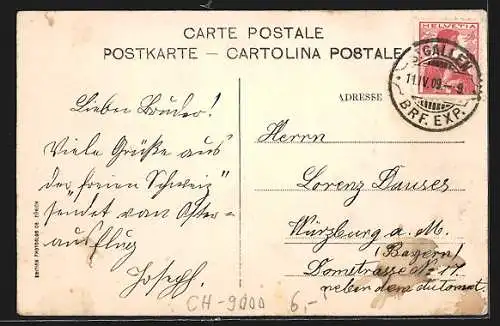 CARTE POSTALE
POSTKARTE — CARTOLINA POSTALE
HELVETIA
ST. GALLEN
11.IV.09.– 9
BRF. EXP.
ADRESSE
Lieber Bruder!
Viele Grüße aus
der „freien Schweiz"
sendet vom Oster=
ausflug
Joseph.
Herrn
Lorenz Dauses
Würzburg a. M.
(Bayern)
Domstrasse No 17
neben dem Automat.
EDITION PHOTOGLOB CO. ZÜRICH
CH-9000 6,-